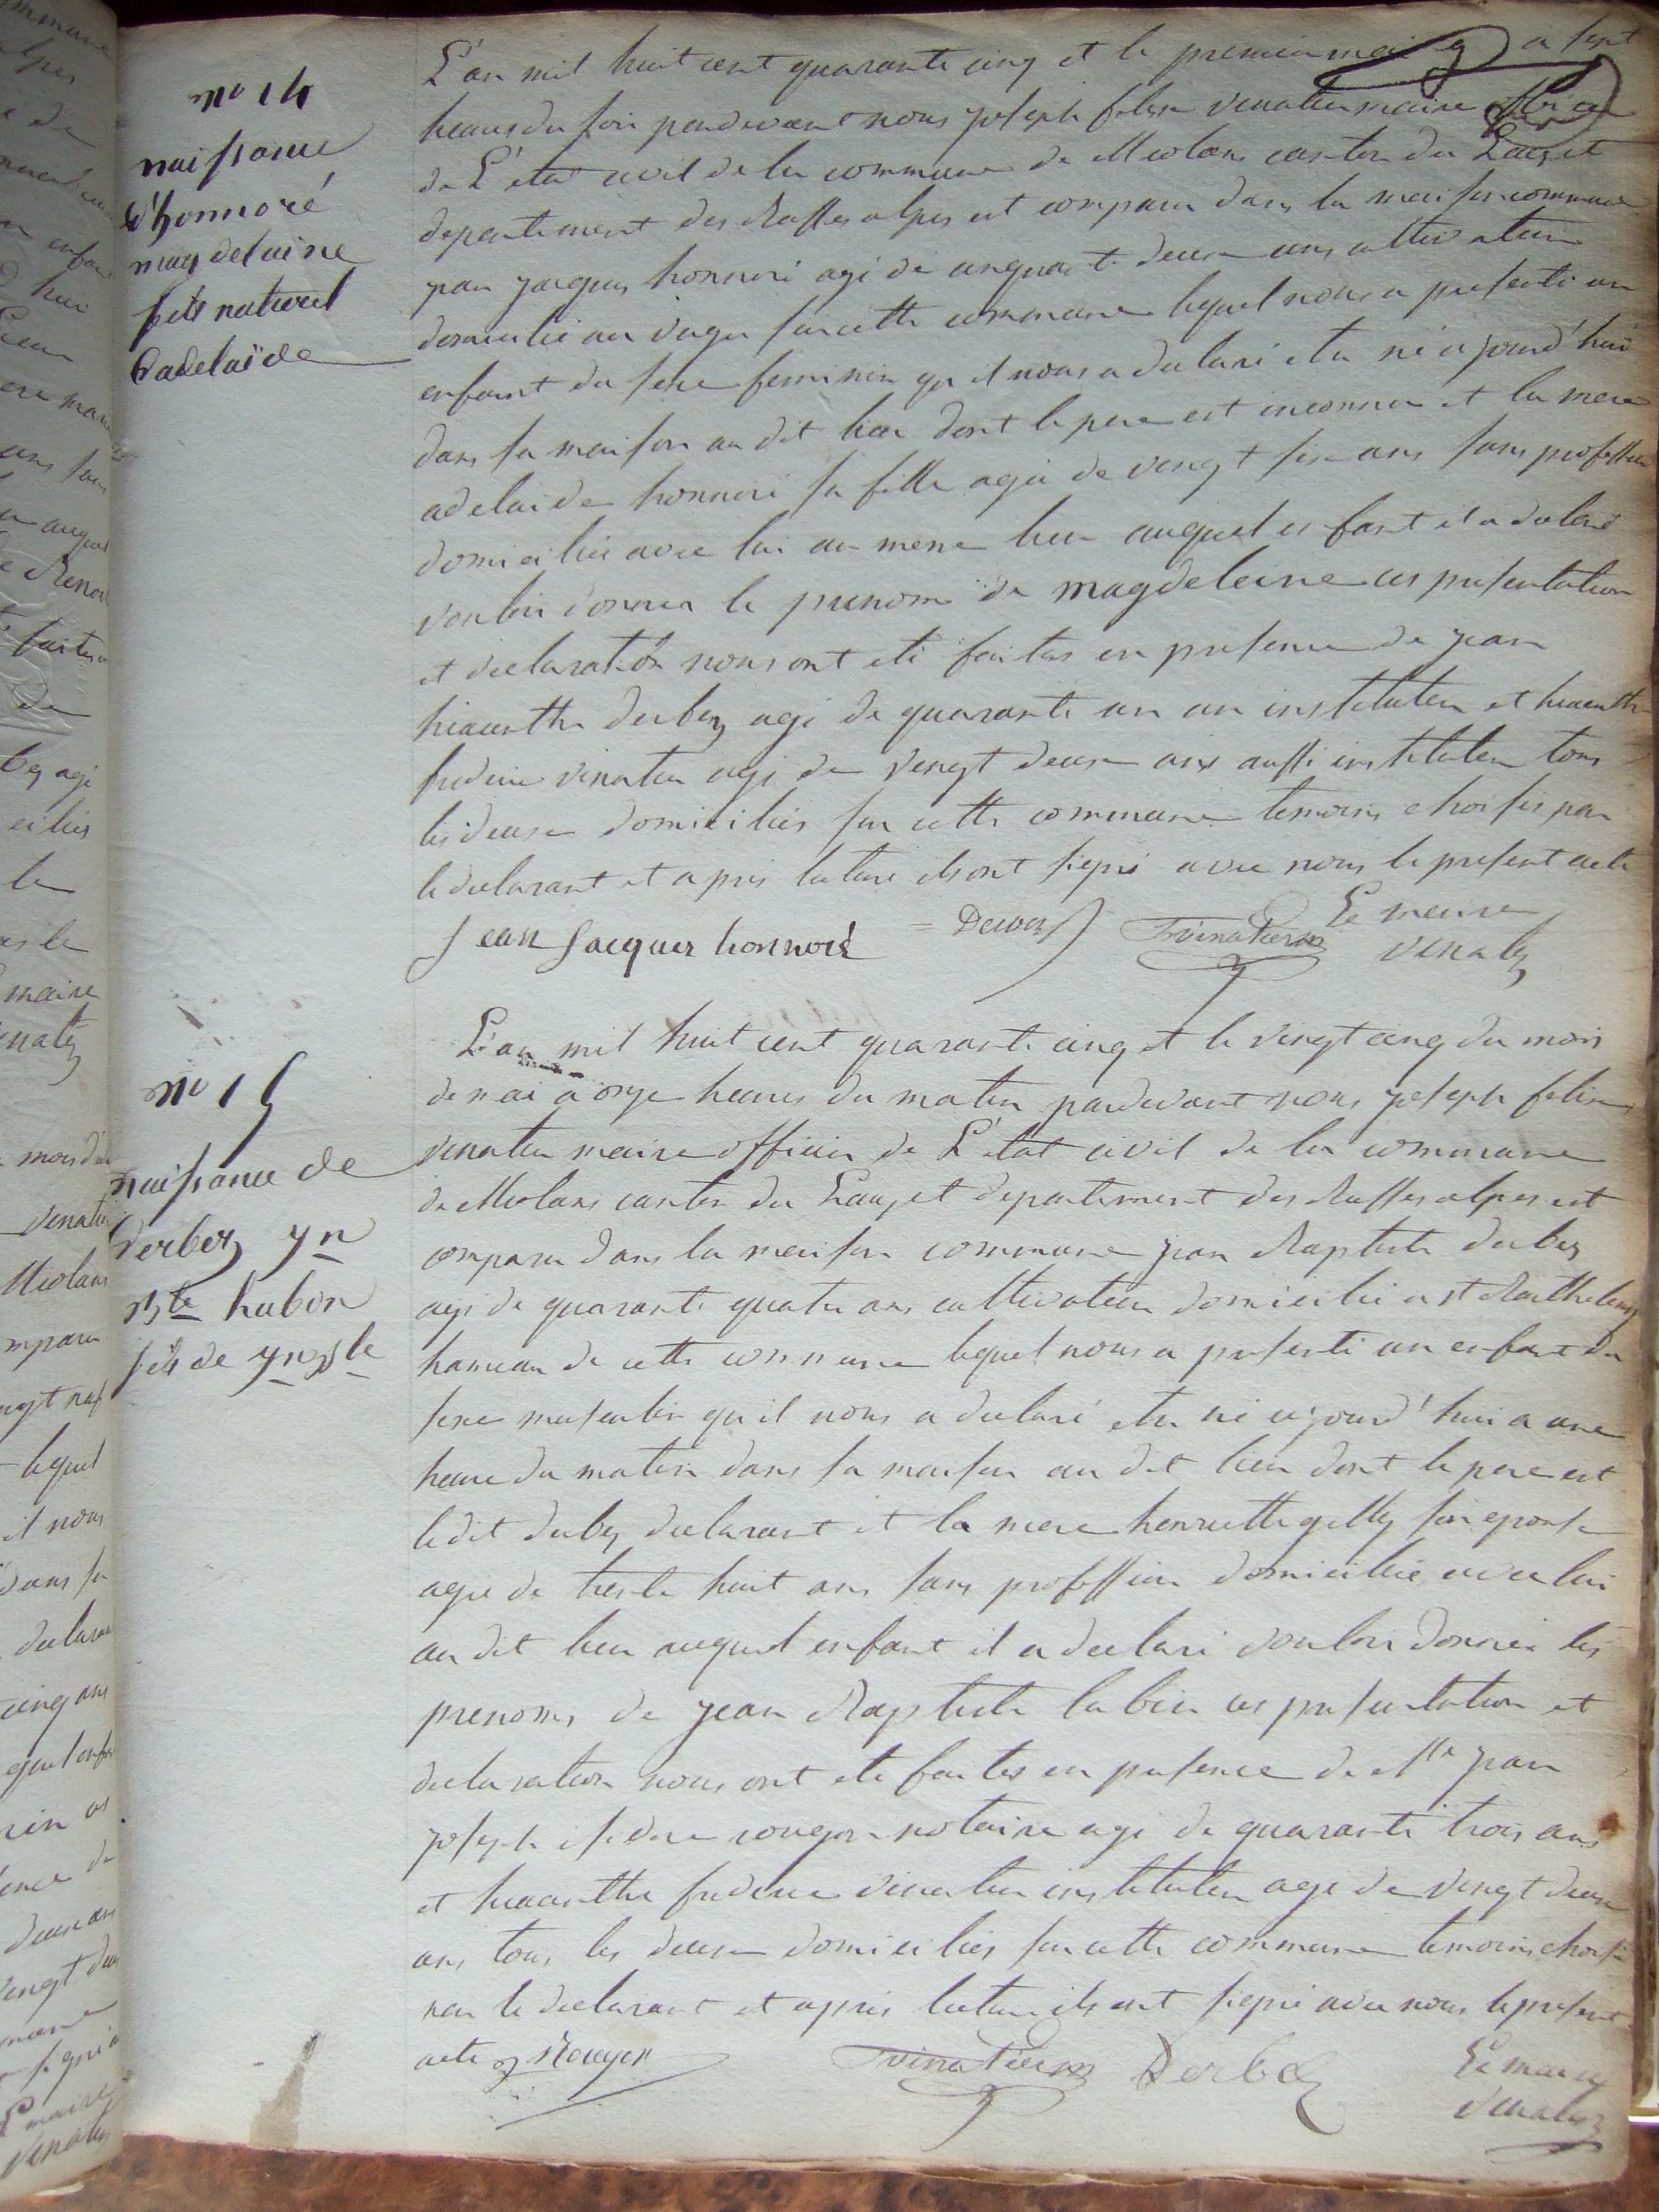 no 14
naissance
d'honnoré
magdelaine
fille naturel
d'adelaïde
L'an mil huit cent quarante cinq et le premier mai a sept
heures du soir pardevant nous joseph felix vinatier maire officier
de L'etat civil de la commune de Meolans canton du Lauzet
departement des Basses alpes est comparu dans la maison commune
jean jacques honnoré agé de cinquante deux ans cultivateur
domicilié au sur cette commune lequel nous a presenté un
enfant du sexe feminin qu'il nous a declaré etre né aujourd'hui
dans sa maison au dit lieu dont le pere est inconnu et la mere
adelaide honnoré sa fille agée de vingt six ans sans profession
domiciliée avec lui au meme lieu auquel enfant il a declaré
vouloir donner le prenom de magdeleine ces presentation
et declaration nous ont eté faites en presence de jean
hiacinthe derbez agé de quarante un an instituteur et hiacinthe
frederic vinatier agé de vingt deux ans aussi instituteur tous
les deux domiciliés sur cette commune temoins choisis par
le declarant et apres lecture ils ont signé avec nous le present acte
Jean Jacques honnoré = Derbez fvinatier Le maire
vinatier
no 15
naissance de
derbez jn
Bte
fils de jn Bte
L'an mil huit cent quarante cinq et le vingt cinq du mois
de mai a onze heures du matin pardevant nous joseph felix
vinatier maire officier de L'etat civil de la commune
de Meolans canton du Lauzet departement des Basses alpes est
comparu dans la maison commune jean Baptiste derbez
agé de quarante quatre ans cultivateur domicilié a st Barthelemy
hameau de cette commune lequel nous a presenté un enfant du
sexe masculin qu'il nous a declaré etre né aujourd'hui a une
heure du matin dans sa maison au dit lieu dont le pere est
le dit derbez declarant et la mere henriette gilly son epouse
agée de trente huit ans sans profession domiciliée avec lui
au dit lieu auquel enfant il a declaré vouloir donner les
prenoms de jean Baptiste ces presentation et
declaration nous ont eté faites en presence de Me jean
joseph isidore rougon notaire agé de quarante trois ans
et hiacinthe frederic vinatier instituteur agé de vingt deux
ans tous les deux domiciliés sur cette commune temoins choisis
par le declarant et apres lecture ils ont signé avec nous le present
acte Rougon fvinatier Derbez Le maire
vinatier